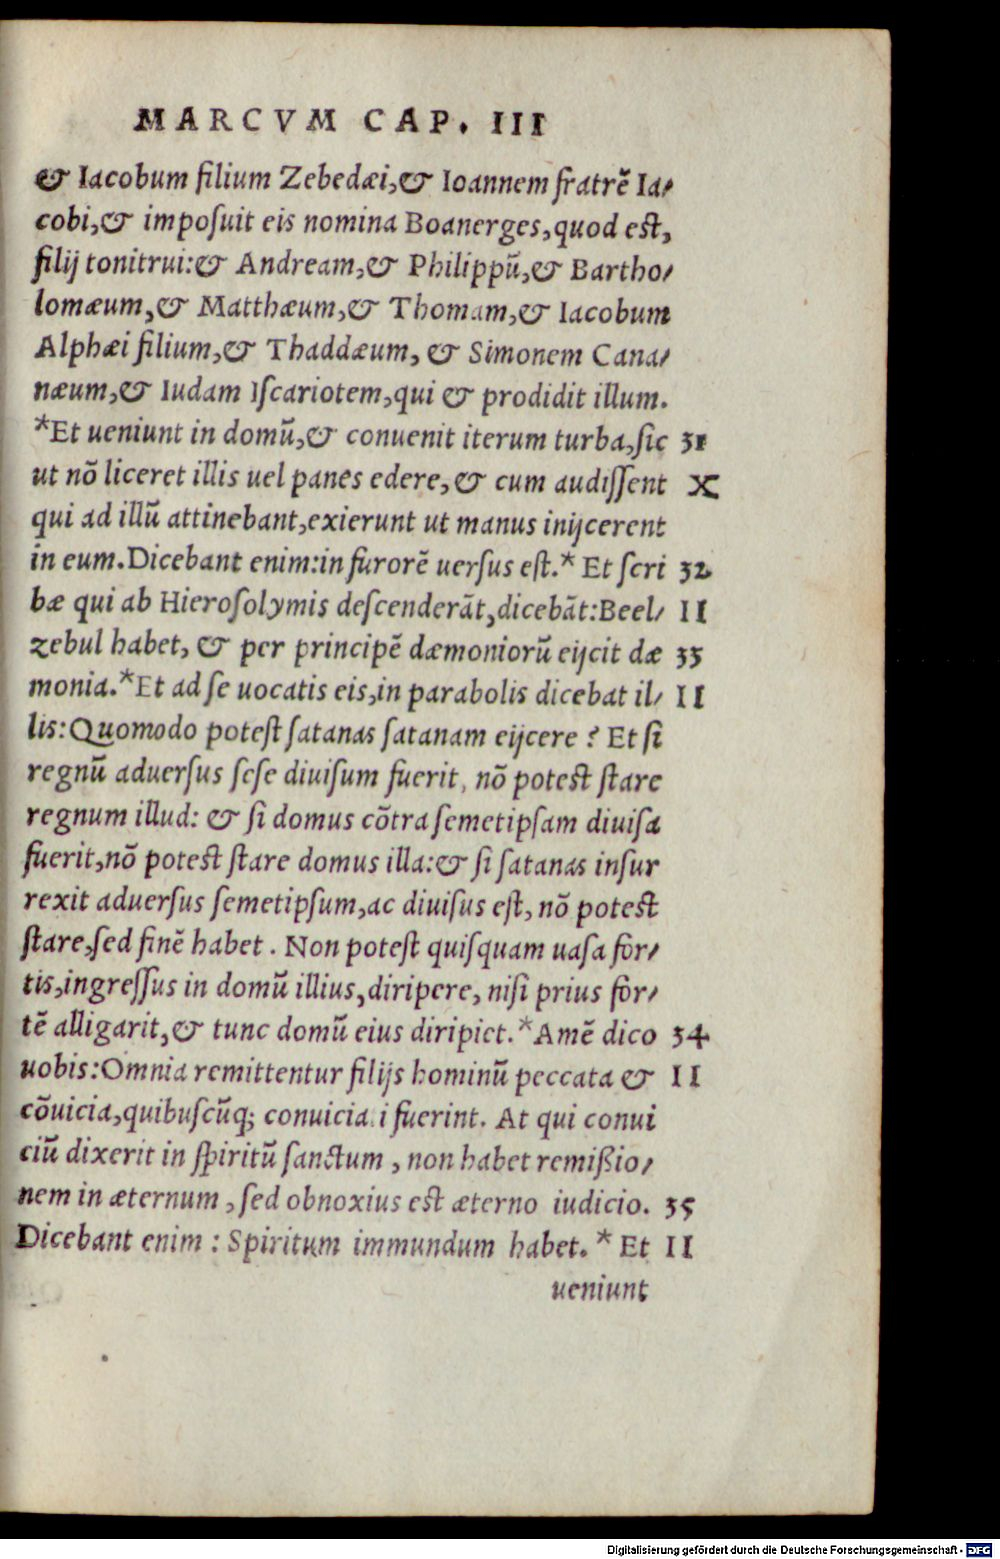 MARCVM CAP. III
& Iacobum filium Zebedæi,& Ioannem fratrẽ Ia/
cobi,& imposuit eis nomina Boanerges,quod est,
filij tonitrui:& Andream,& Philippũ,& Bartho/
lomæum,& Matthæum,& Thomam,& Iacobum
Alphæi filium,& Thaddæum, & Simonem Cana/
næum,& Iudam Iscariotem,qui & prodidit illum.
*Et ueniunt in domũ,& conuenit iterum turba,sic 31
ut nõ liceret illis uel panes edere,& cum audissent X
qui ad illũ attinebant,exierunt ut manus inijcerent
in eum.Dicebant enim:in furorẽ uersus est.* Et scri 32
bæ qui ab Hierosolymis descenderãt,dicebãt:Beel/ II
zebul habet, & per principẽ dæmoniorũ eijcit dæ 33
monia.*Et ad se uocatis eis,in parabolis dicebat il/ II
lis:Quomodo potest satanas satanam eijcere ? Et si
regnũ aduersus sese diuisum fuerit, nõ potest stare
regnum illud: & si domus cõtra semetipsam diuisa
fuerit,nõ potest stare domus illa:& si satanas insur
rexit aduersus semetipsum,ac diuisus est, nõ potest
stare,sed finẽ habet . Non potest quisquam uasa for/
tis,ingressus in domũ illius,diripere, nisi prius for/
tẽ alligarit,& tunc domũ eius diripiet.*Amẽ dico 34
uobis:Omnia remittentur filijs hominũ peccata & II
cõuicia,quibuscũq; conuicia i fuerint. At qui conui
ciũ dixerit in spiritũ sanctum , non habet remißio/
nem in æternum , sed obnoxius est æterno iudicio. 35
Dicebant enim : Spiritum immundum habet. * Et II
ueniunt
Digitalisierung gefördert durch die Deutsche Forschungsgemeinschaft - DFG